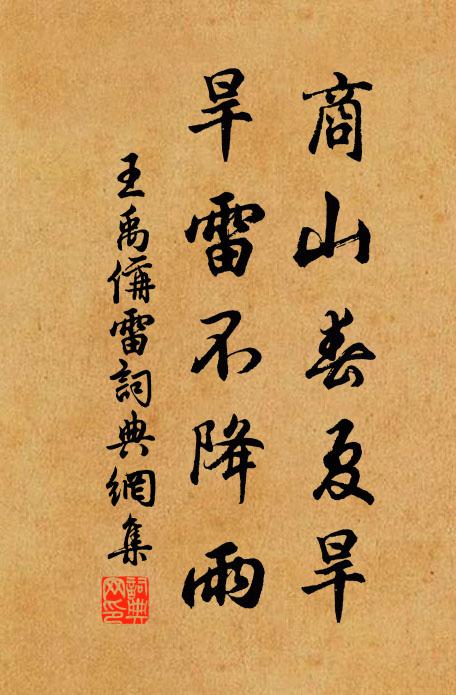 商山春夏旱
旱雷不降雨
王禹偁雷詞典網集
詞典網印